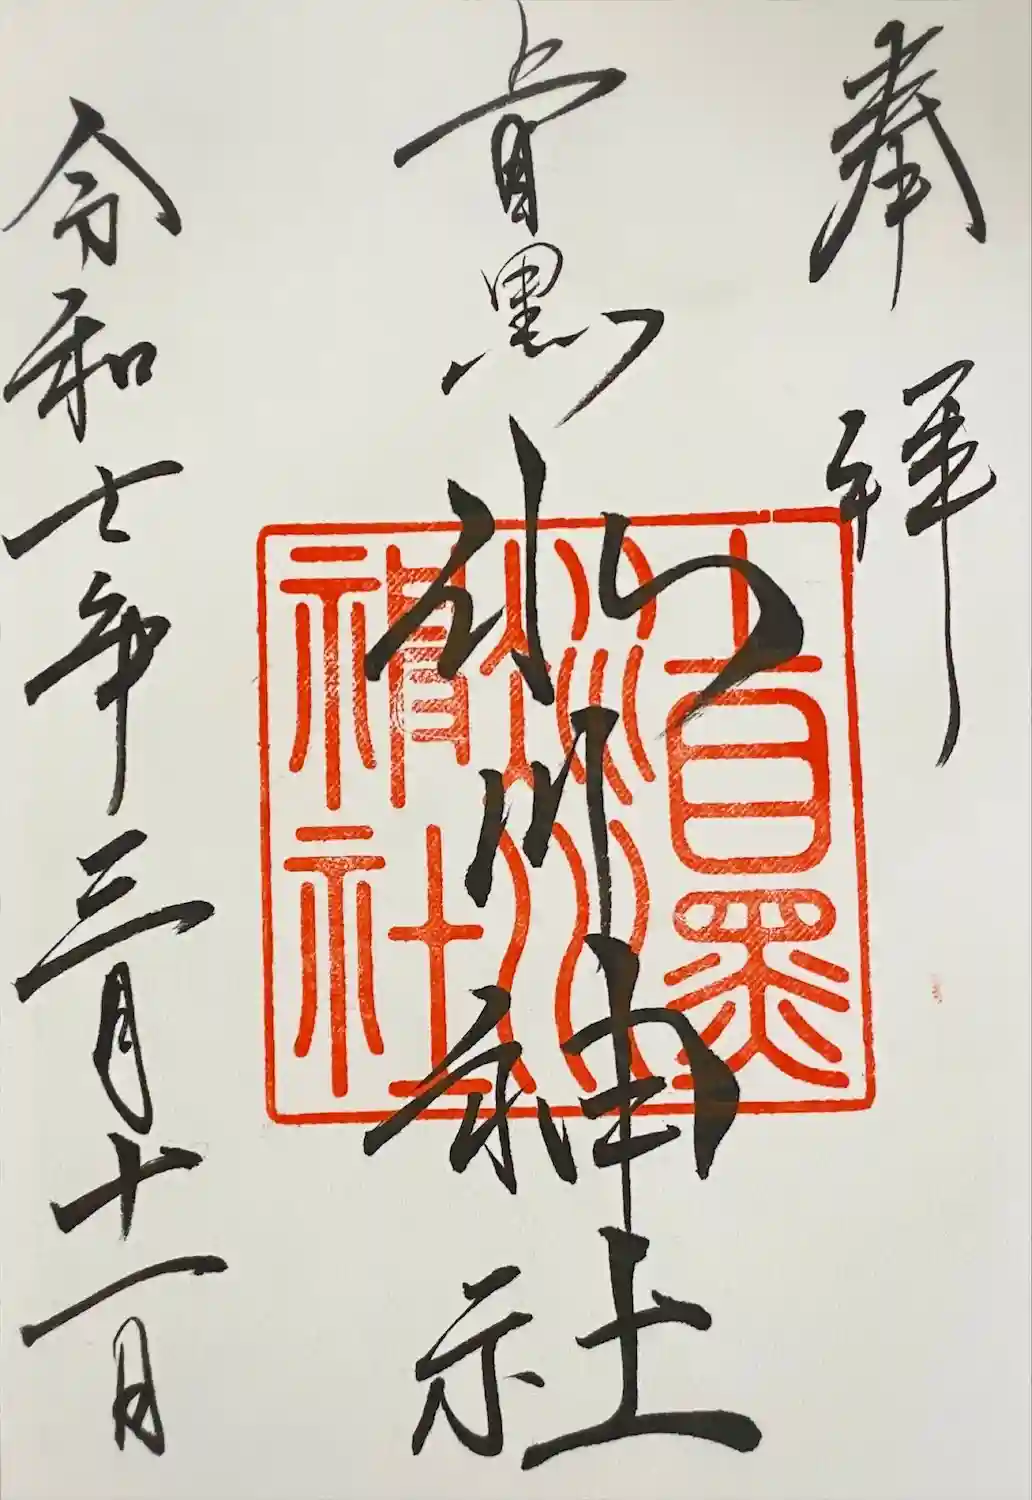 奉拝
上目黒氷川神社
令和七年三月十一日
上目黒
氷川
神社